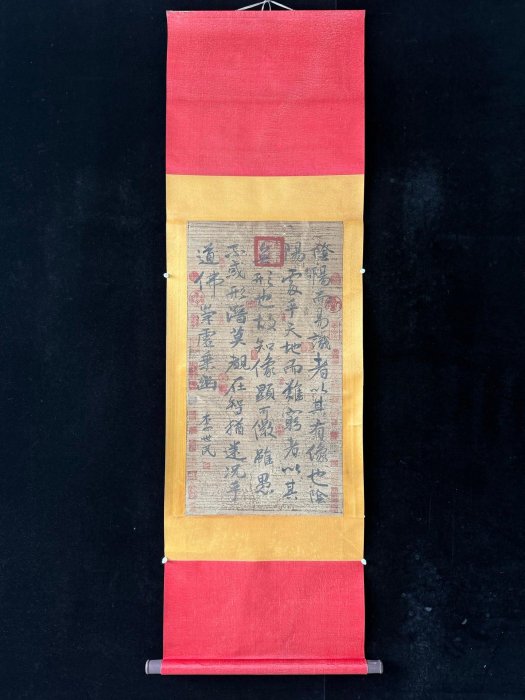 陰陽而易識者以其有像也陰
陽處乎天地而難窮者以其
無形也故知像顯可徵雖愚
不惑形潛莫覩在智猶迷況乎
道佛崇虛乗幽
李世民